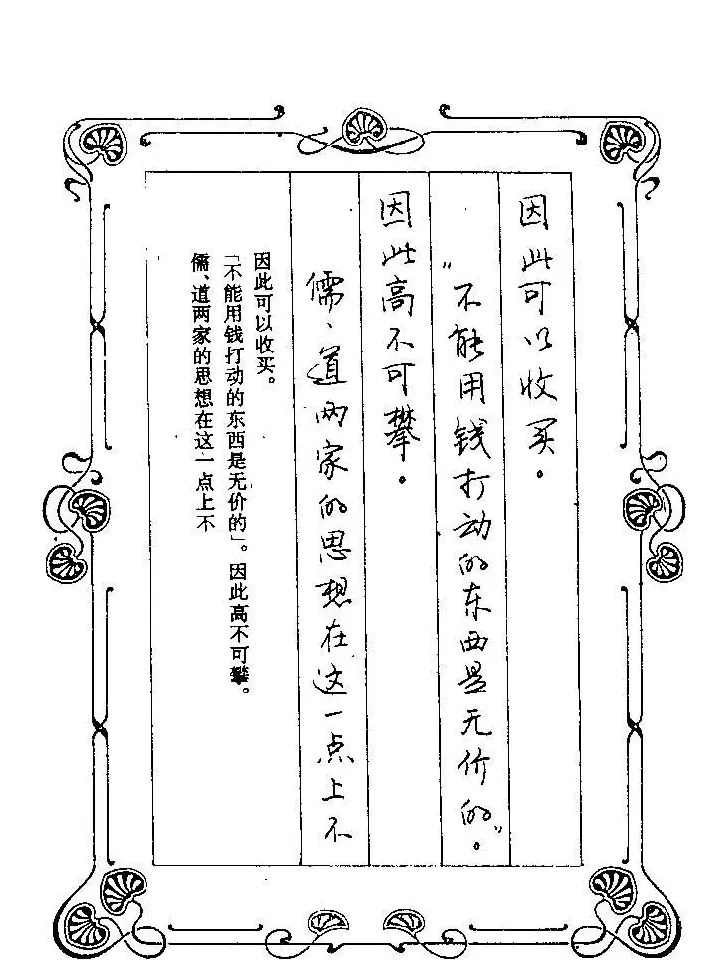 因此可以收买。
“不能用钱打动的东西是无价的”。
因此高不可攀。
儒、道两家的思想在这一点上不
因此可以收买。
「不能用钱打动的东西是无价的」。因此高不可攀。
儒、道两家的思想在这一点上不